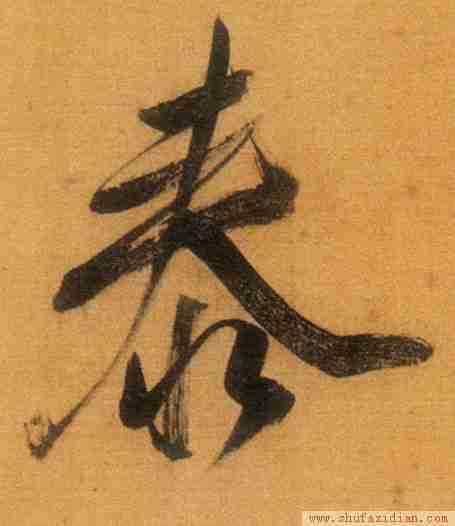 泰
www.shufazidian.com